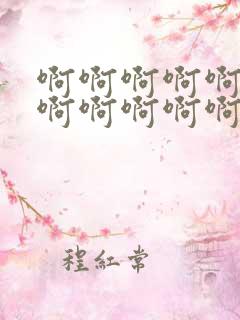 啊啊啊啊啊
啊啊啊啊啊
程红常